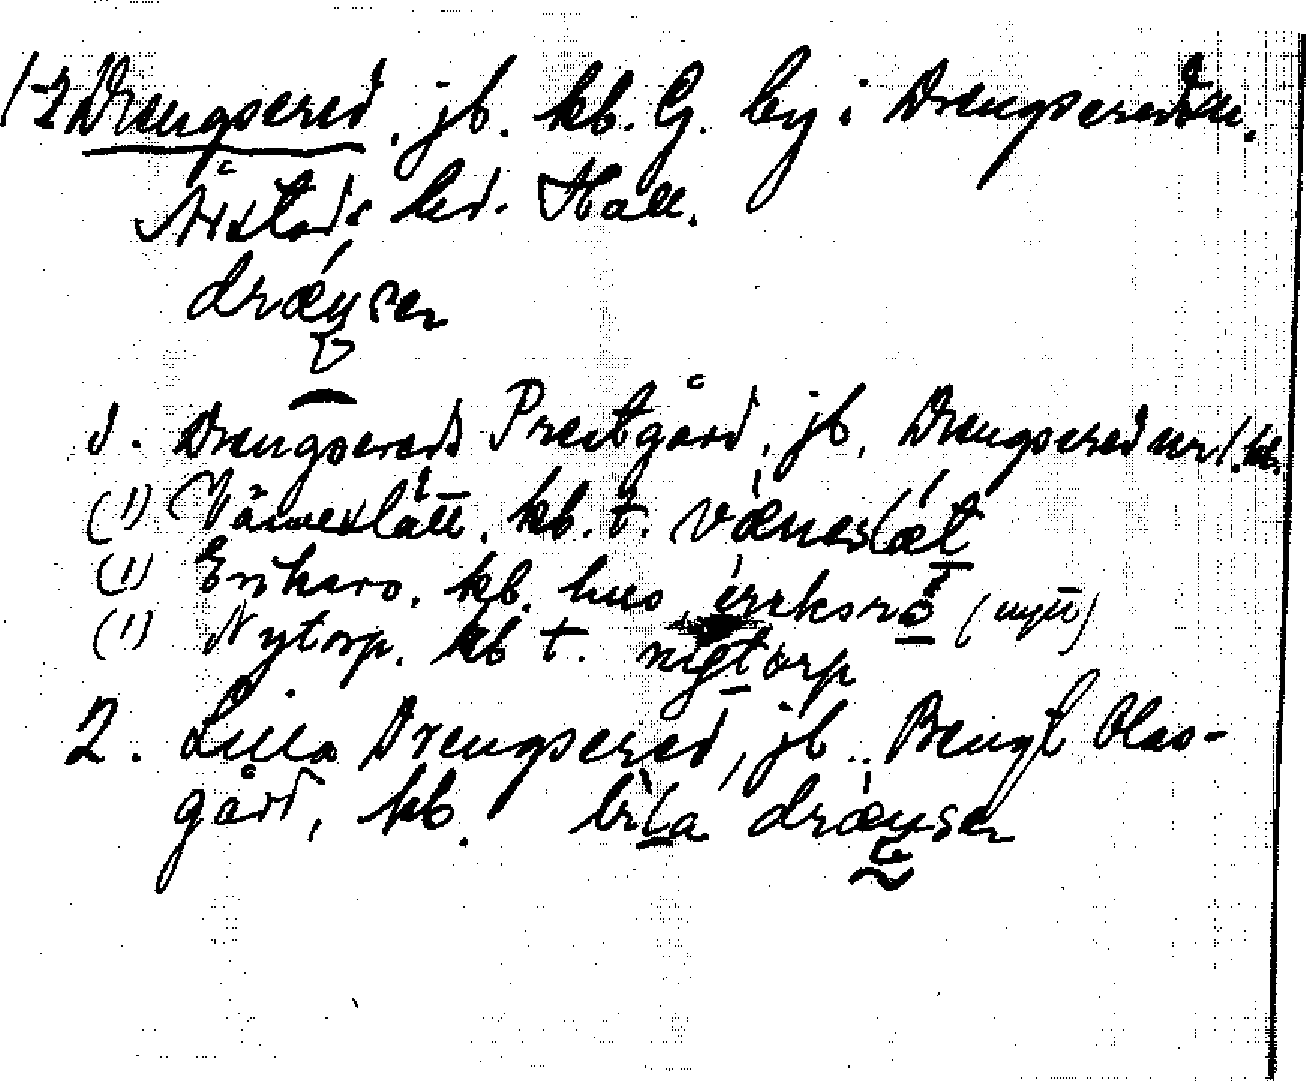 1-2 Drengsered, jb. kb. G. by i Drengsereds sn.
Årstads hd. Hall.
dræŋser
1. Drengsereds Prestgård, jb. Drengsered nr 1. kb.
(1) Väneslätt, kb. t. væneslæt
(1) Eriksro, kb. hus, irreksrö (nytt)
(1) Nytorp, kb t. nigtorp
2. Lilla Drengsered, jb., Bengt Olas-
gård, kb. lila dræŋser